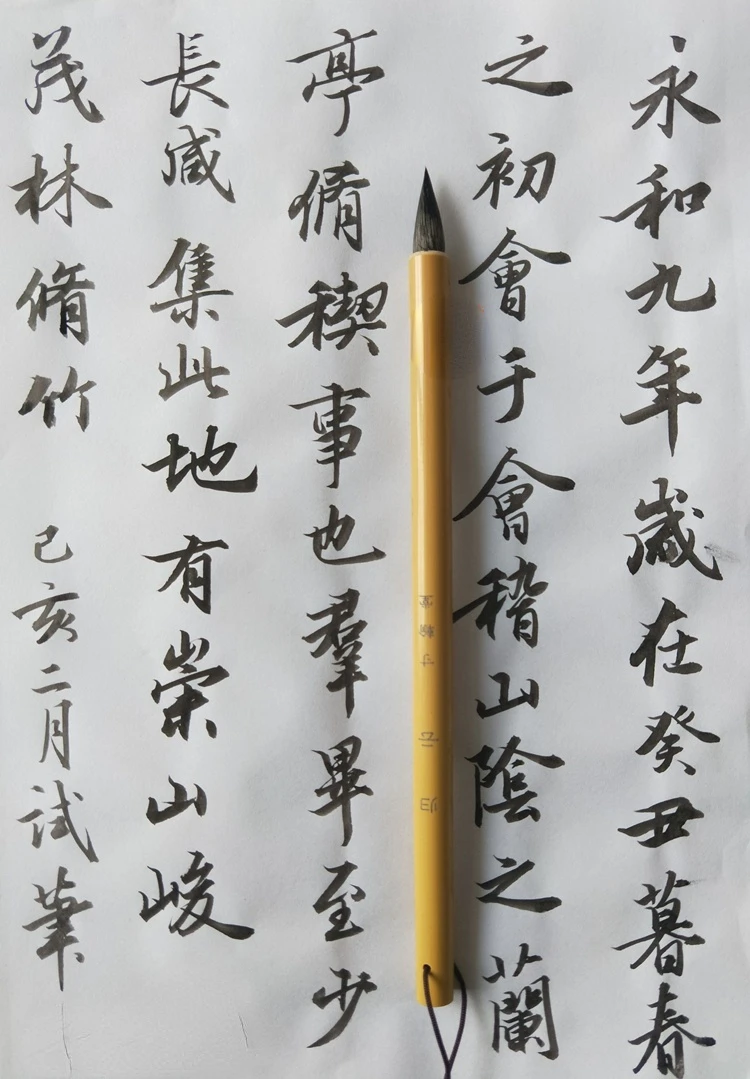 永和九年歲在癸丑暮春
之初會于會稽山陰之蘭
亭脩稧事也羣畢至少
長咸集此地有崇山峻
茂林脩竹
己亥二月試筆
归云
寸翰堂